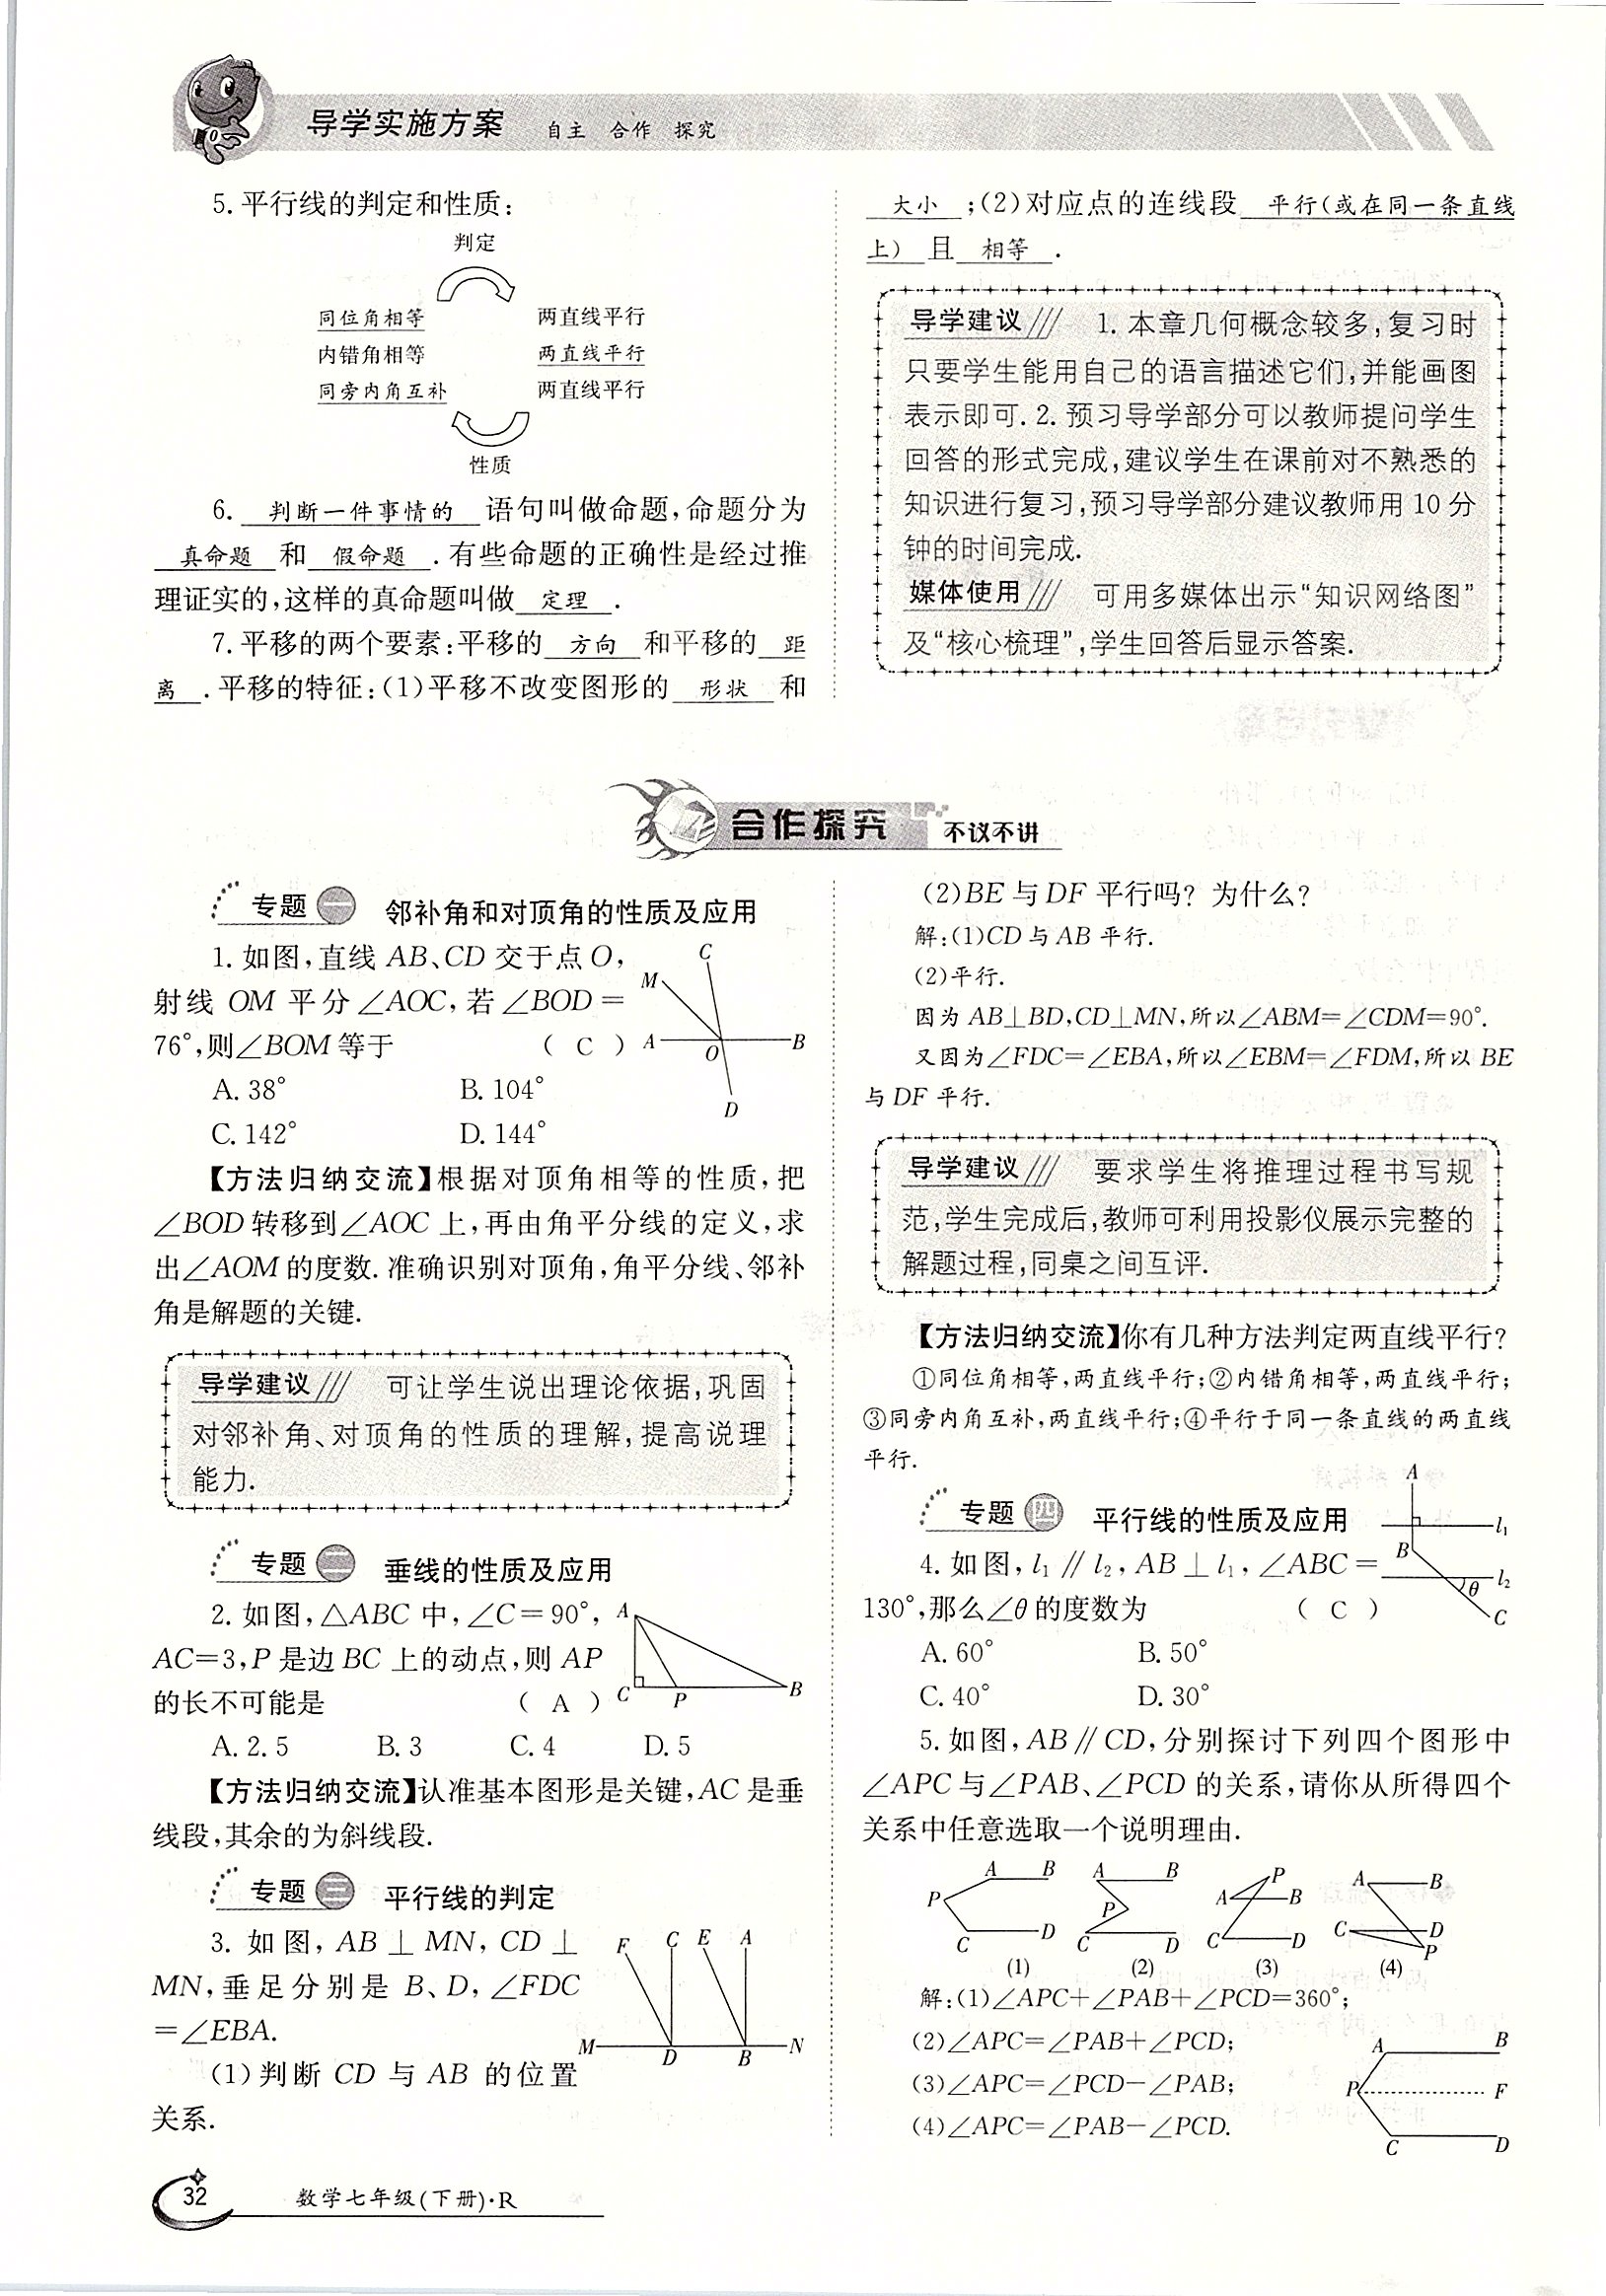 导学实施方案 自主 合作 探究
5.平行线的判定和性质:
判定
同位角相等 两直线平行
内错角相等 两直线平行
同旁内角互补 两直线平行
性质
6. 判断一件事情的 语句叫做命题,命题分为
真命题 和 假命题 .有些命题的正确性是经过推
理证实的,这样的真命题叫做 定理 .
7.平移的两个要素:平移的 方向 和平移的 距
离 .平移的特征:(1)平移不改变图形的 形状 和
大小 ;(2)对应点的连线段 平行(或在同一条直线
上) 且 相等 .
导学建议/// 1.本章几何概念较多,复习时
只要学生能用自己的语言描述它们,并能画图
表示即可.2.预习导学部分可以教师提问学生
回答的形式完成,建议学生在课前对不熟悉的
知识进行复习,预习导学部分建议教师用10分
钟的时间完成.
媒体使用/// 可用多媒体出示“知识网络图”
及“核心梳理”,学生回答后显示答案.
合作探究 不议不讲
专题一 邻补角和对顶角的性质及应用
1.如图,直线AB、CD交于点O,
射线OM平分∠AOC,若∠BOD=
76°,则∠BOM等于 ( C )
A.38° B.104°
C.142° D.144°
C
M
A O B
D
【方法归纳交流】根据对顶角相等的性质,把
∠BOD转移到∠AOC上,再由角平分线的定义,求
出∠AOM的度数.准确识别对顶角,角平分线、邻补
角是解题的关键.
导学建议/// 可让学生说出理论依据,巩固
对邻补角、对顶角的性质的理解,提高说理
能力.
专题二 垂线的性质及应用
2.如图,△ABC中,∠C=90°,
AC=3,P是边BC上的动点,则AP
的长不可能是 ( A )
A.2.5 B.3 C.4 D.5
A
C P B
【方法归纳交流】认准基本图形是关键,AC是垂
线段,其余的为斜线段.
专题三 平行线的判定
3.如图,AB⊥MN,CD⊥
MN,垂足分别是B、D,∠FDC
=∠EBA.
(1)判断CD与AB的位置
关系.
F C E A
M D B N
(2)BE与DF平行吗?为什么?
解:(1)CD与AB平行.
(2)平行.
因为AB⊥BD,CD⊥MN,所以∠ABM=∠CDM=90°.
又因为∠FDC=∠EBA,所以∠EBM=∠FDM,所以BE
与DF平行.
导学建议/// 要求学生将推理过程书写规
范,学生完成后,教师可利用投影仪展示完整的
解题过程,同桌之间互评.
【方法归纳交流】你有几种方法判定两直线平行?
①同位角相等,两直线平行;②内错角相等,两直线平行;
③同旁内角互补,两直线平行;④平行于同一条直线的两直线
平行.
专题四 平行线的性质及应用
4.如图,l₁∥l₂,AB⊥l₁,∠ABC=
130°,那么∠θ的度数为 ( C )
A.60° B.50°
C.40° D.30°
A
l₁
B
l₂
θ
C
5.如图,AB∥CD,分别探讨下列四个图形中
∠APC与∠PAB、∠PCD的关系,请你从所得四个
关系中任意选取一个说明理由.
A B A B P A B
P P A B
C D C D C D C D P
(1) (2) (3) (4)
解:(1)∠APC+∠PAB+∠PCD=360°;
(2)∠APC=∠PAB+∠PCD;
(3)∠APC=∠PCD−∠PAB;
(4)∠APC=∠PAB−∠PCD.
A B
P F
C D
32 数学七年级(下册)·R